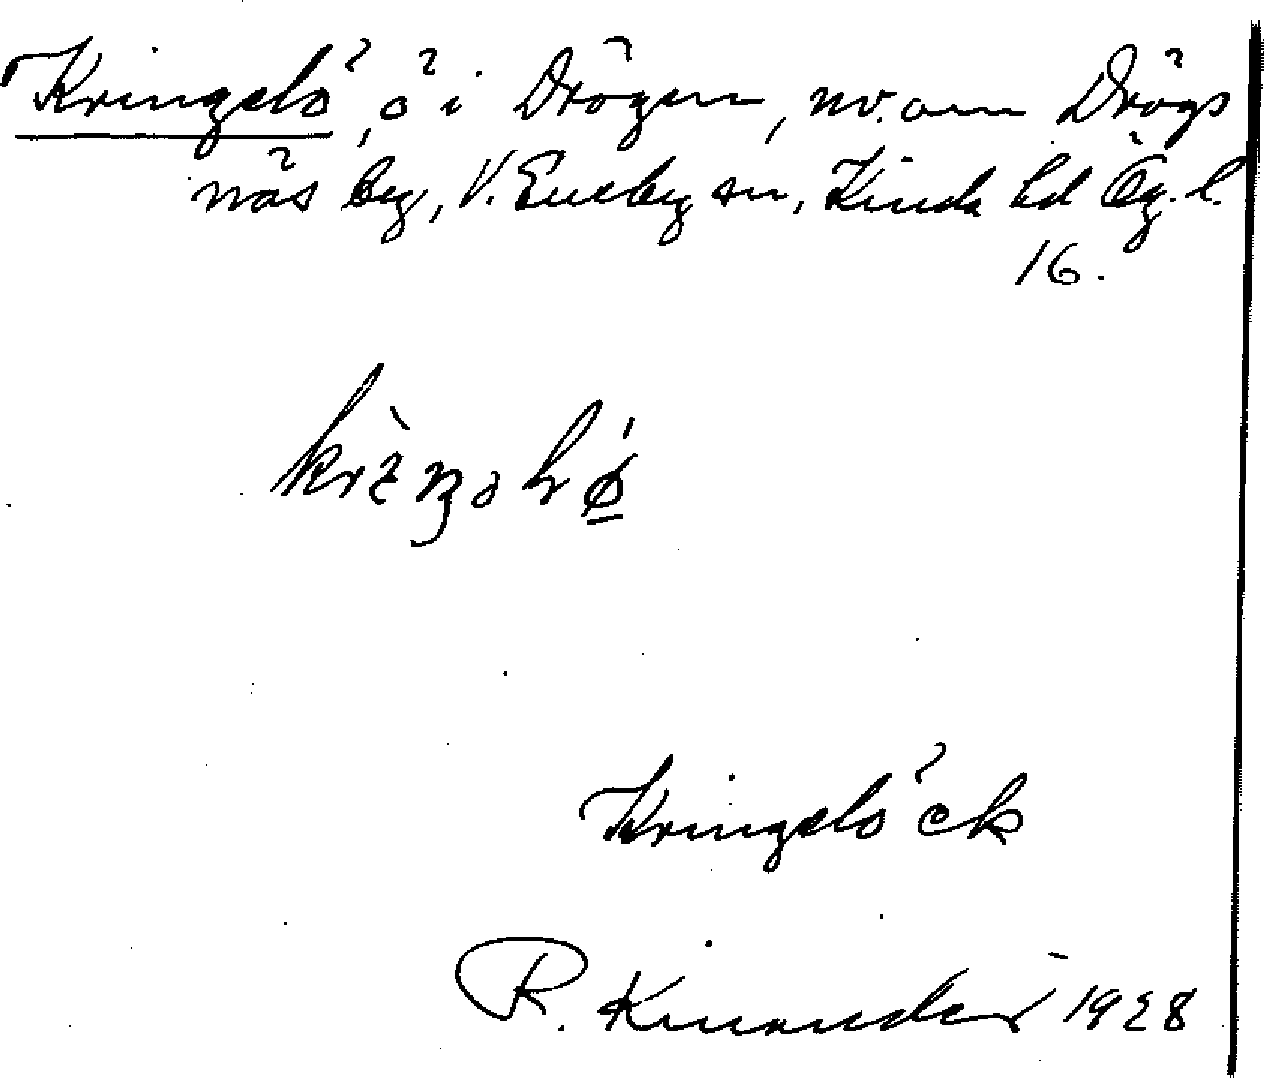 Kringelö, ö i Drögen, nv. om Drögs
näs by, V. Eneby sn, Kinda hd Ög. l.
16.
Kringelöck
R. Kinander 1928